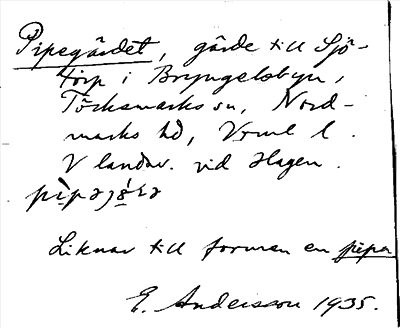 Pipegärdet, gärde till Sjö-
torp i Bryngelsbyn,
Töcksmarks sn, Nord-
marks hd, Vrml l.
V landsv. vid Hagen.

Liknar till formen en pipa
E. Andersson 1935.